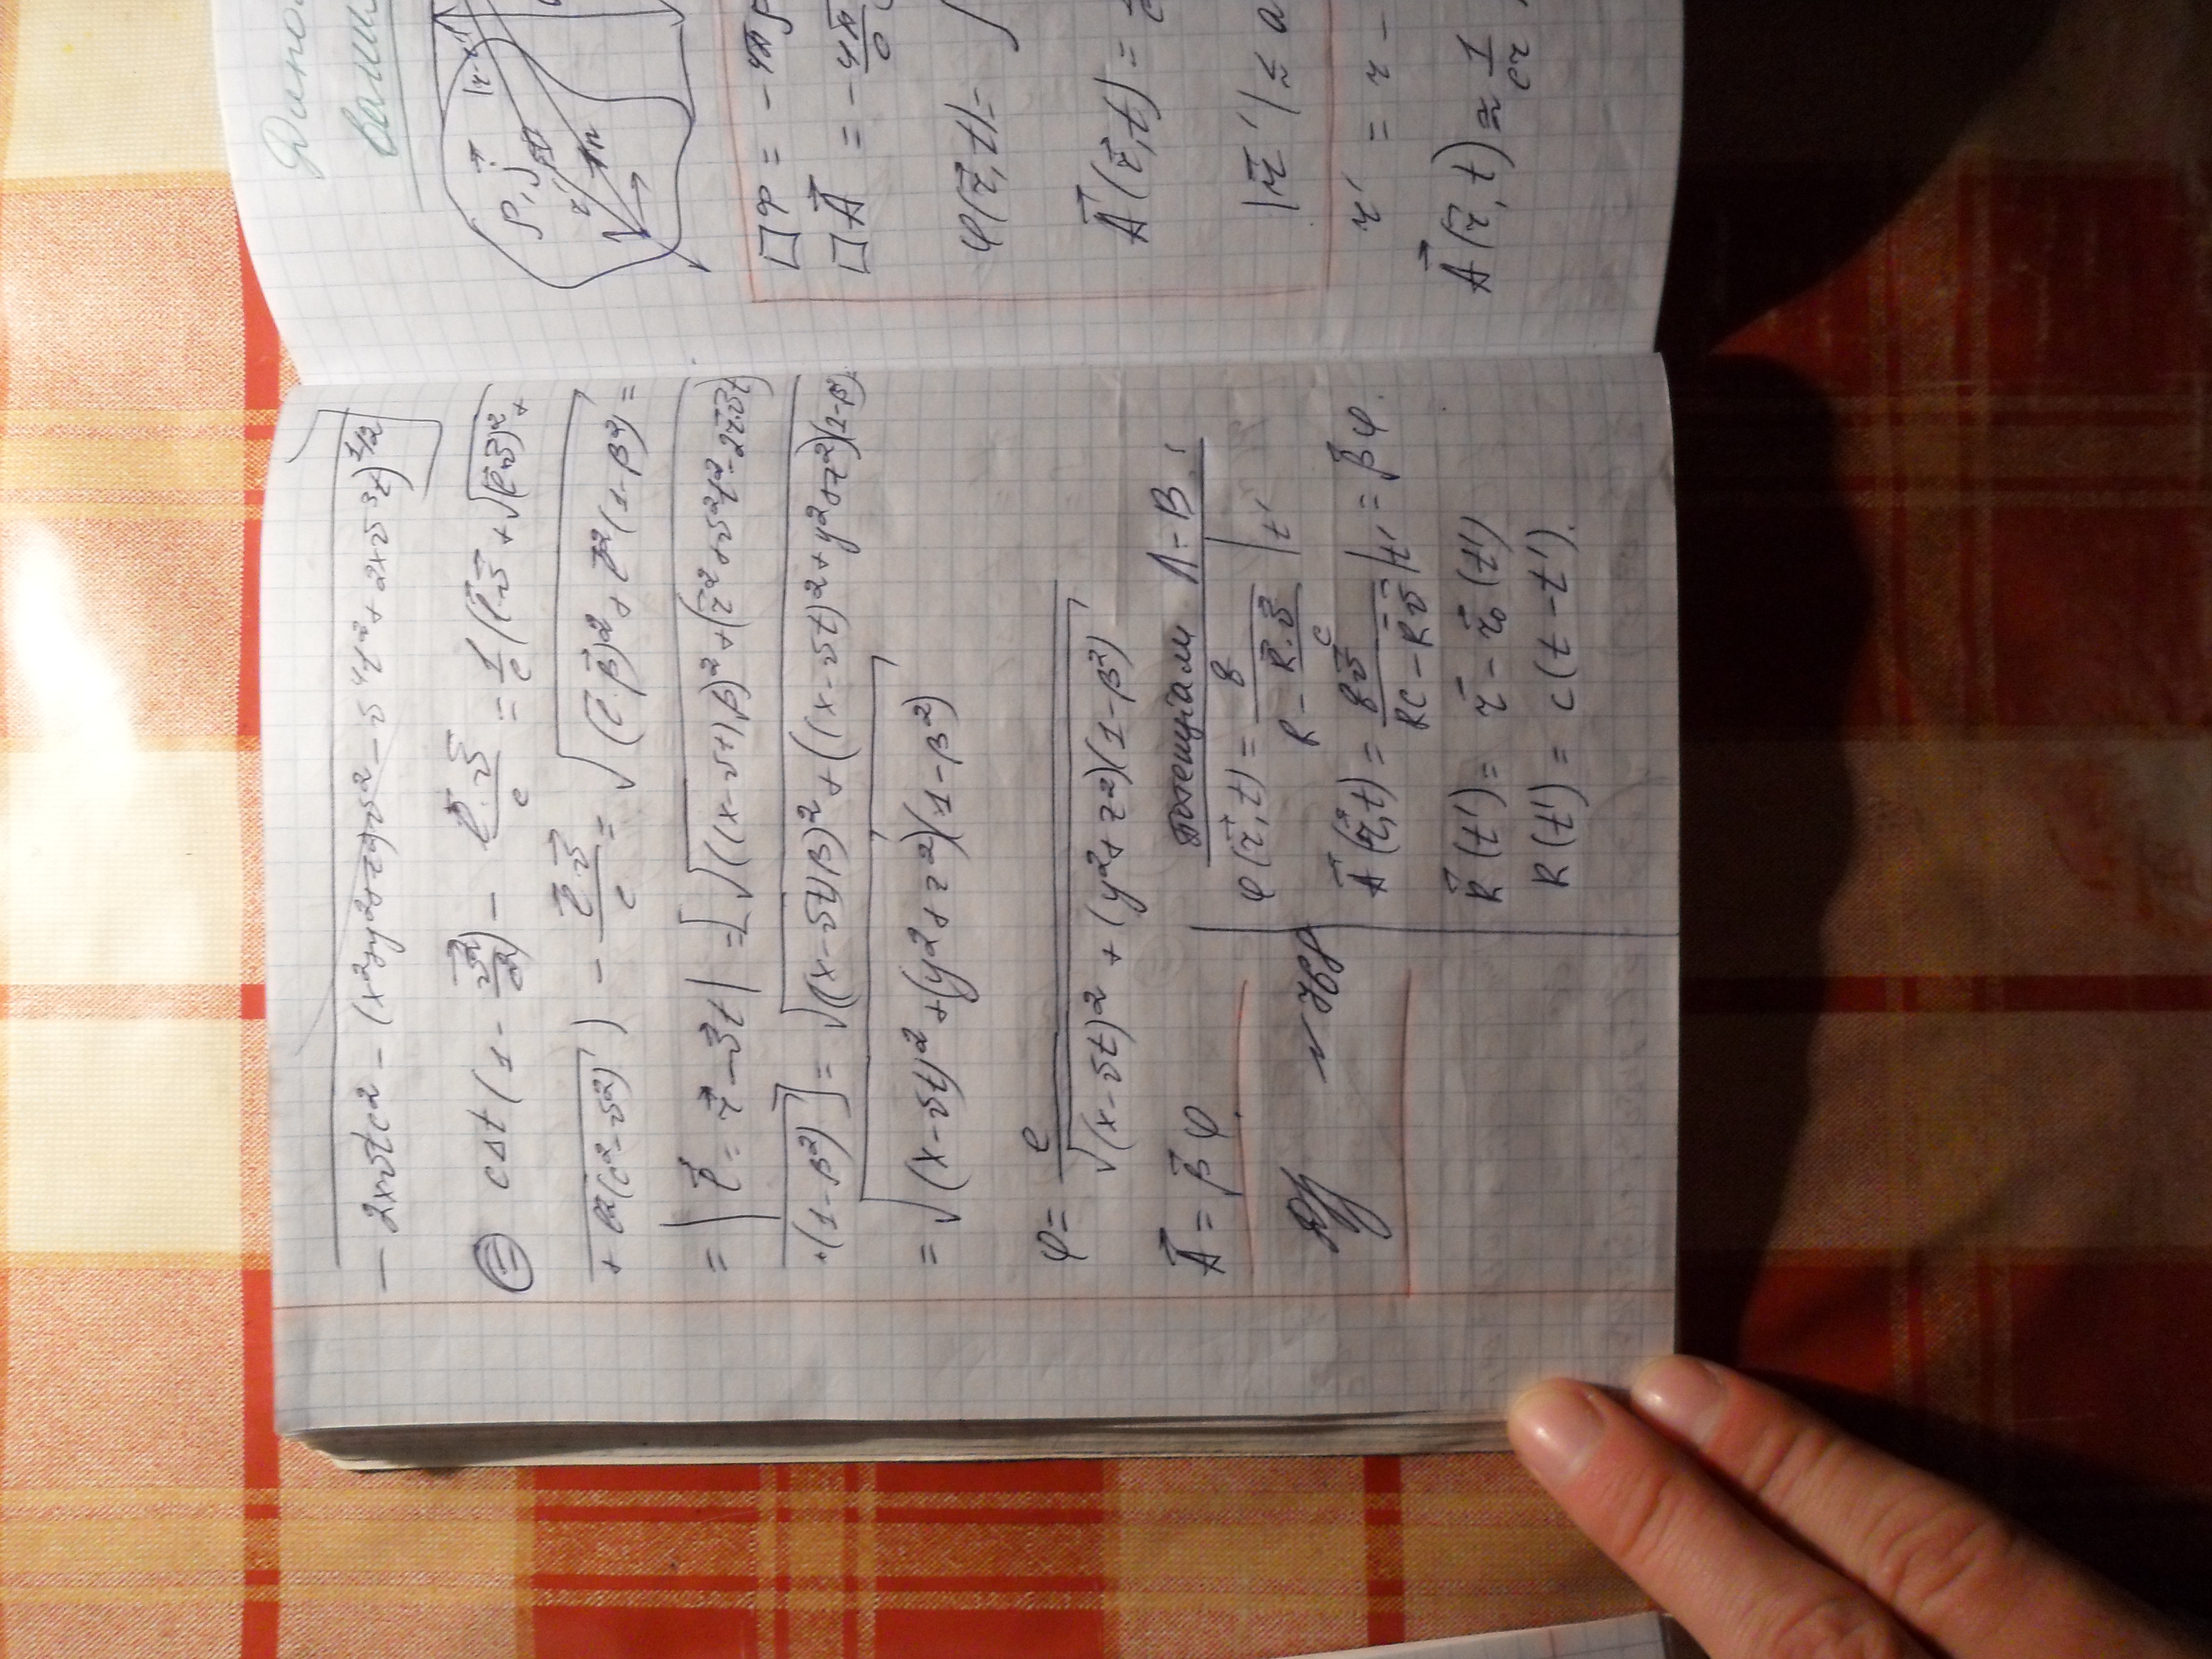 - 2xvtc² - (x²+y²+z²)v² - v⁴t² + 2xv³t)^1/2
⊜ cΔt(1 - v²/c²) - l⃗·v⃗/c = 1/c (l⃗·v⃗ + √(l⃗·v⃗)² +
+ l²(c²-v²)) - l⃗·v⃗/c = √(l⃗·β⃗)² + l²(1-β²) =
= | l⃗ = r⃗ - v⃗t | = [√((x-vt)β)² + (r² + v²t² - 2r⃗·v⃗t)
·(1-β²)] = √((x-vt)β)² + ((x-vt)² + y² + z²)(1-β²)
= √(x-vt)² + (y²+z²)(1-β²)
φ = e / √(x-vt)² + (y²+z²)(1-β²)
A⃗ = β⃗φ
Потенциалы Л-В:
φ(r⃗,t) = q / (R - R⃗·v⃗/c) |t'
A⃗(r⃗,t) = qv⃗ / (Rc - R⃗v⃗) |t' = β⃗φ.
R⃗(t') = r⃗ - r⃗₀(t')
R(t') = c(t-t').
ρ, j⃗
□φ = -4πρ
□A⃗ = -4π/c
φ(r⃗,t) = ∫
A⃗(r⃗,t) =
|r⃗'| ≤ a
r' = r -
A⃗(r⃗,t) ≅ 1/cr